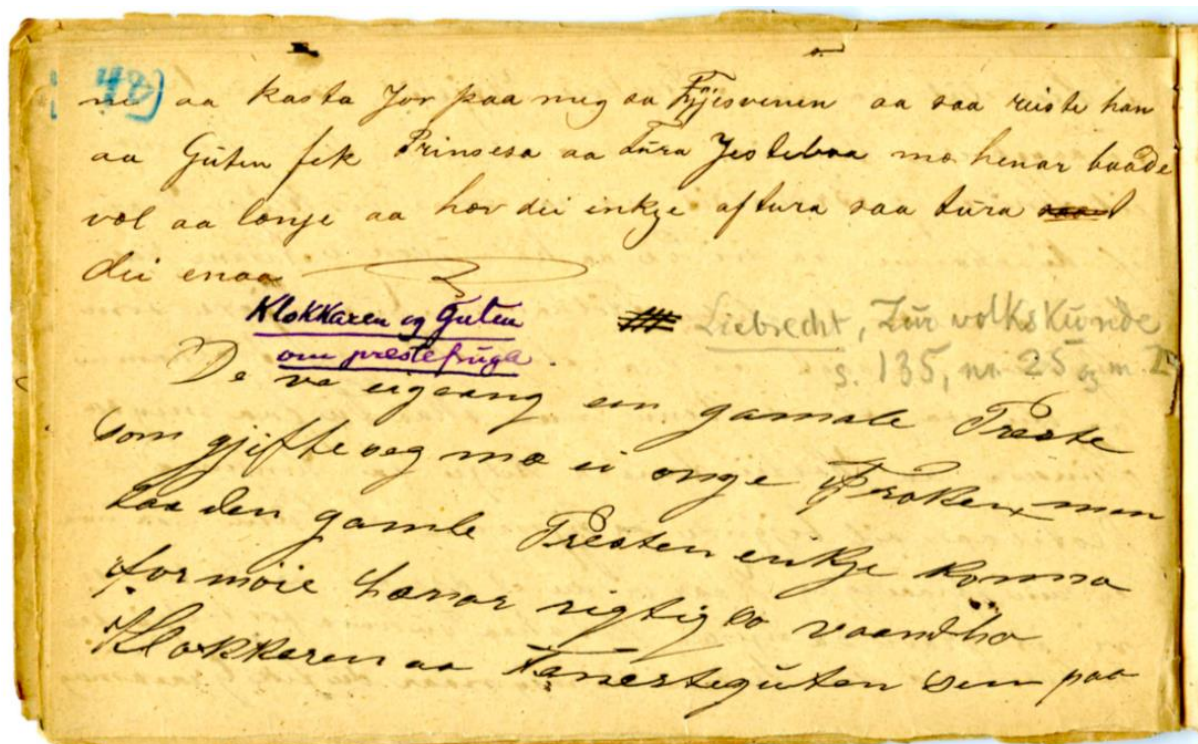 42)
ne aa kasta Jor paa meg sa Fyjesvenen aa saa reiste han
aa Guten fek Prinsesa aa tura Jestebaa mæ henar baade
vol aa lonje aa hov dei inkje aftura saa tura
dei enaa
Klokkaren og Guten
om prestefruga.
Liebrecht, Zur volkskunde
s. 135, nr. 25
De va eigaang ein gamale Præste
som gjifte seg mæ ei onge Frøken men
daa den gamle Presten enkje konna
formøie henar rigtig so vaandho
Klokkaren aa Tenesteguten sen paa